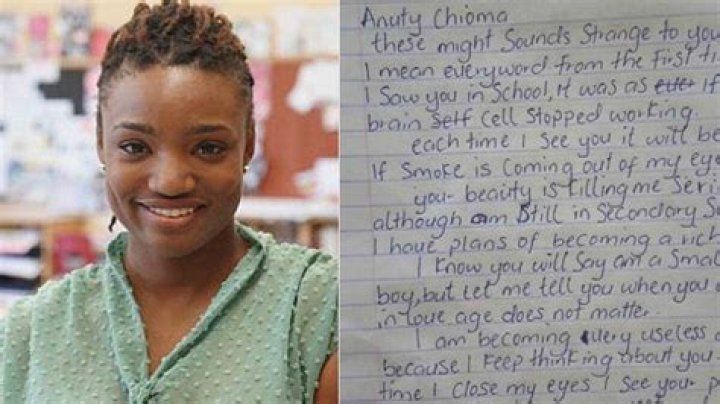 Anuty Chioma
these might Sounds Strange to you
I mean everyword from the first ti
I Saw you in School, it was as if
brain Self cell Stopped working.
each time I See you it will be
If Smoke is Coming out of my eye
you- beauty is tilling me Seri
although am Still in Secondary S
I have plans of becoming a rich
I know you will Say am a Smal
boy, but let me tell you when you a
in love age does not matter.
I am becoming very useless
because I keep thinking about you
time I Close my eyes I See you- p